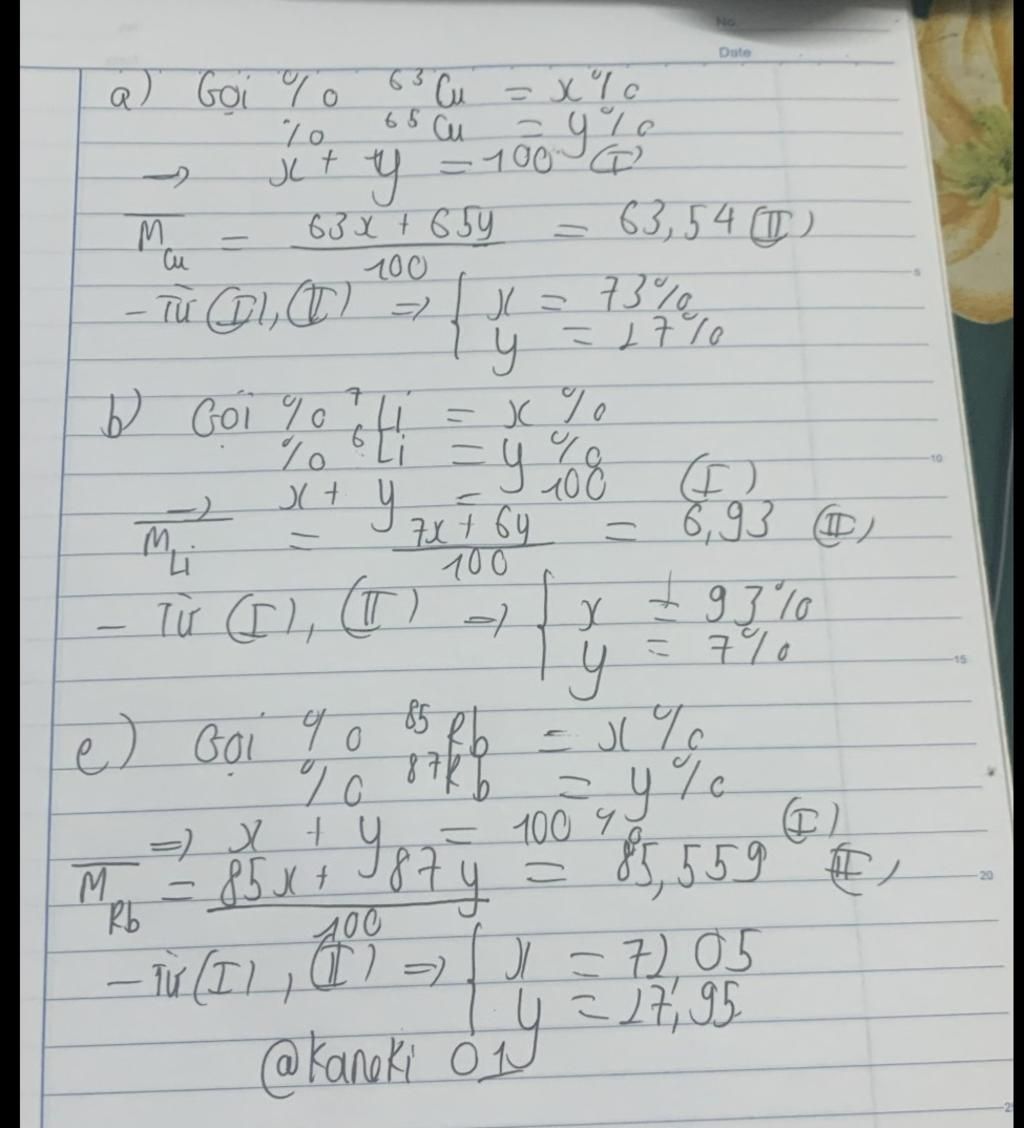 No.
Date
a) Gọi % ⁶³Cu = x%
% ⁶⁵Cu = y%
→ x + y = 100 (I)
M̅Cu = (63x + 65y)/100 = 63,54 (II)
- Từ (I), (II) => { x = 73%
y = 27%
b) Gọi % ⁷Li = x%
% ⁶Li = y%
→ x + y = 100 (I)
M̅Li = (7x + 6y)/100 = 6,93 (II)
- Từ (I), (II) => { x = 93%
y = 7%
c) Gọi % ⁸⁵Rb = x%
% ⁸⁷Rb = y%
=> x + y = 100% (I)
M̅Rb = (85x + 87y)/100 = 85,559 (II)
- Từ (I), (II) => { x = 72,05
y = 27,95
@Kaneki 01
5
10
15
20